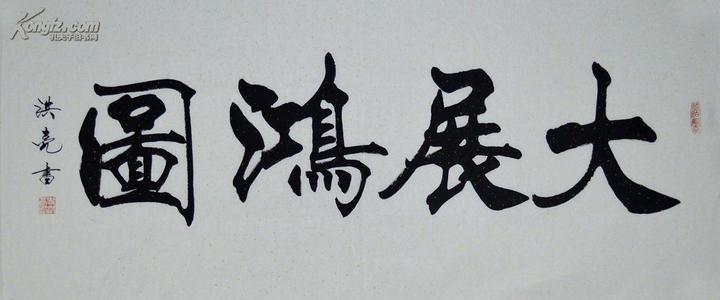 大展鴻圖
洪亮書
Kongfz.com
孔夫子旧书网